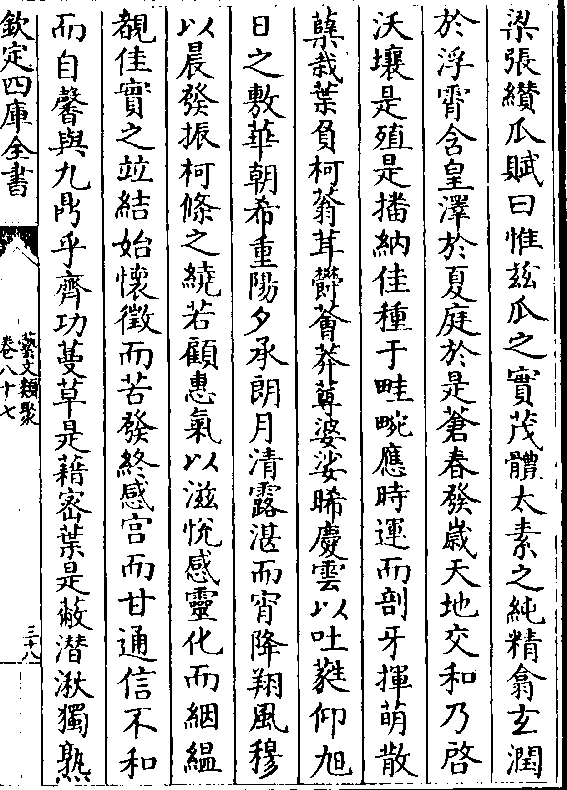 梁張纘瓜賦曰惟兹瓜之實茂體太素之純精翕玄潤
於浮霄含皇澤於夏庭於是蒼春發歲天地交和乃啓
沃壤是殖是播納佳種于畦畹應時運而剖牙揮萌散
蘖栽葉負柯蓊茸鬱薈莽蓴婆娑晞慶雲以吐蕤仰旭
日之敷華朝希重陽夕承朗月清露湛而宵降翔風穆
以晨發振柯條之繞若顧惠氣以滋悅感靈化而絪緼
覩佳實之竝結始懷徵而苦發終感宫而甘通信不和
而自馨與九鼎乎齊功蔓草是藉密葉是蔽潜湫獨熟
欽定四庫全書
藝文類聚
卷八十七
三十八